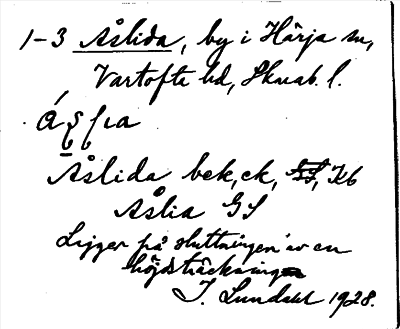 1-3 Åslida, by i Hårja sn,
Vartofta hd, Skarab. l.
Åslida bek, ek, Kb
Åslia GS
Ligger på sluttningen av en
höjdsträckning
I. Lundahl 1928.